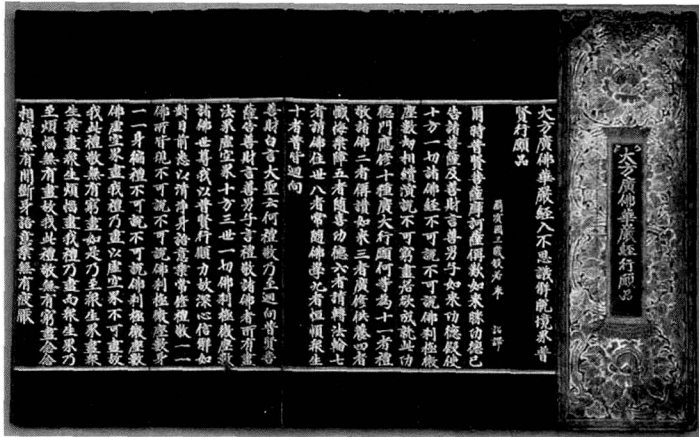 大方廣佛華嚴經行願品
大方廣佛華嚴經入不思議解脫境界普
賢行願品
罽賓國三藏般若奉 詔譯
爾時普賢菩薩摩訶薩稱歎如來勝功德已
告諸菩薩及善財言善男子如來功德假使
十方一切諸佛經不可說不可說佛剎極微
塵數劫相續演說不可窮盡若欲成就此功
德門應修十種廣大行願何等為十一者禮
敬諸佛二者稱讚如來三者廣修供養四者
懺悔業障五者隨喜功德六者請轉法輪七
者請佛住世八者常隨佛學九者恒順眾生
十者普皆迴向
善財白言大聖云何禮敬乃至迴向普賢菩
薩告善財言善男子言禮敬諸佛者所有盡
法界虛空界十方三世一切佛剎極微塵數
諸佛世尊我以普賢行願力故深心信解如
對目前悉以清淨身語意業常修禮敬一一
佛所皆現不可說不可說佛剎極微塵數身
一一身徧禮不可說不可說佛剎極微塵數
佛虛空界盡我禮乃盡以虛空界不可盡故
我此禮敬無有窮盡如是乃至眾生界盡眾
生業盡眾生煩惱盡我禮乃盡而眾生界乃
至煩惱無有盡故我此禮敬無有窮盡念念
相續無有間斷身語意業無有疲厭